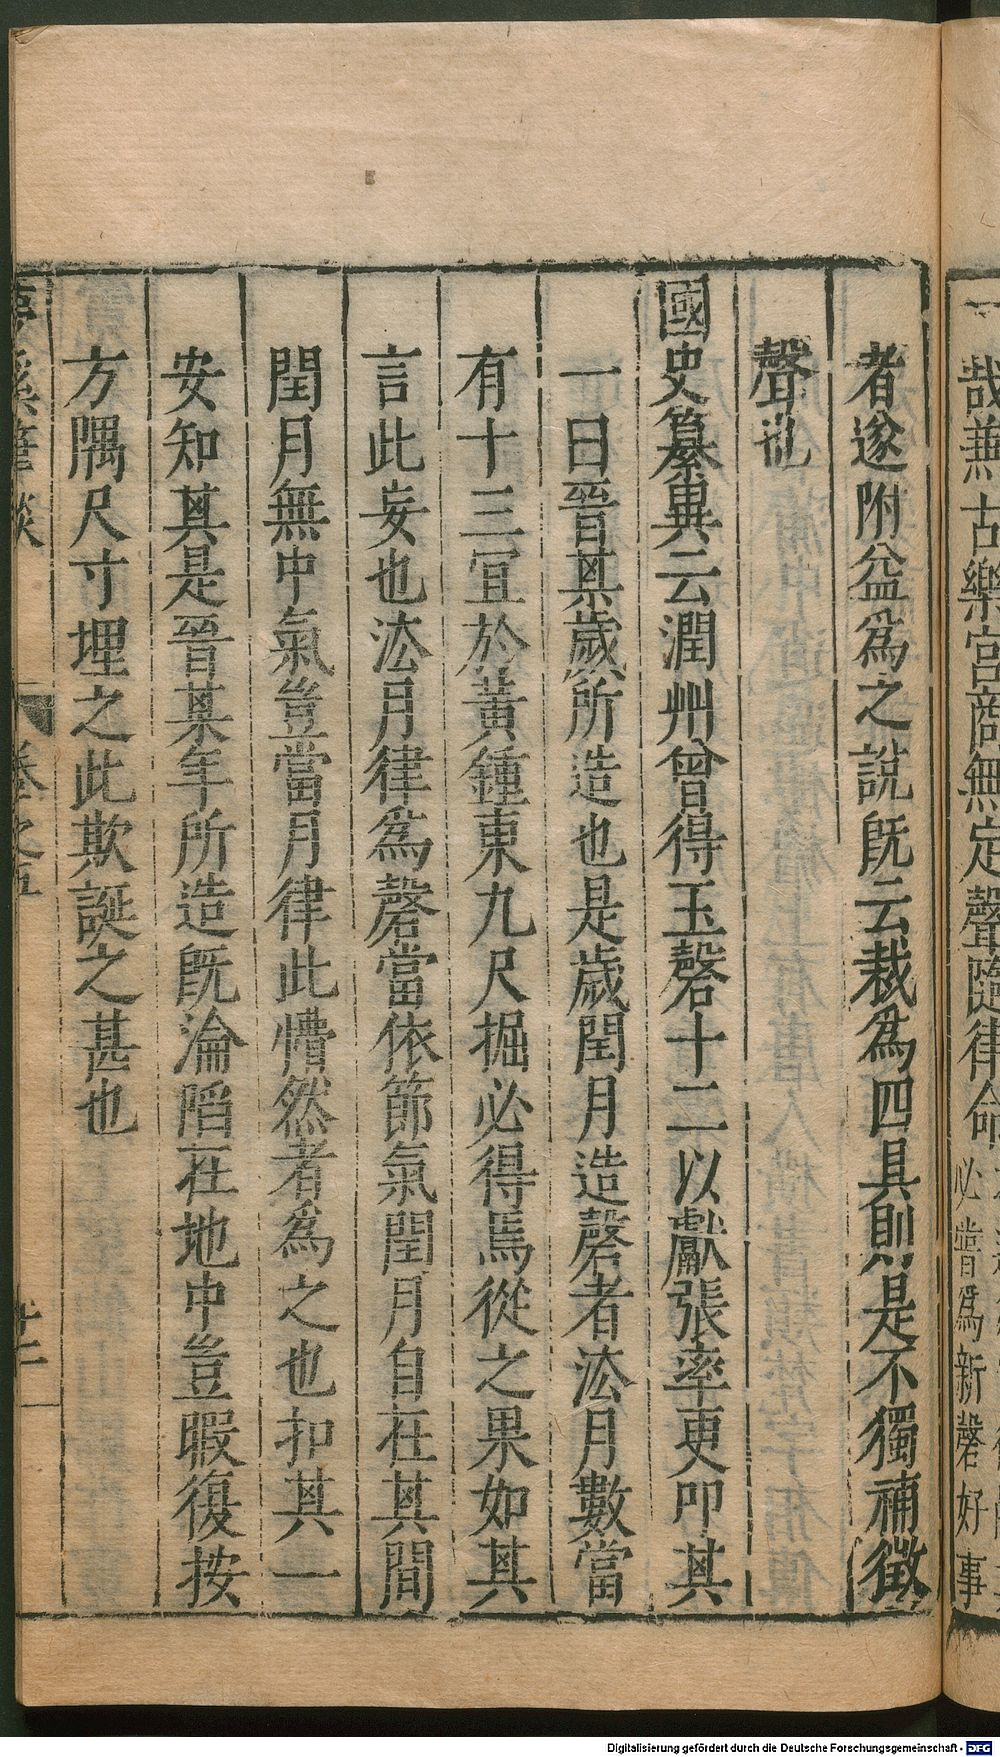 哉兼古樂宮商無定聲隨律命
必嘗爲新磬好事
者遂附益爲之說旣云裁爲四具則是不獨補徵
聲也
國史纂異云潤州曾得玉磬十二以獻張率更叩其
一曰晉某歲所造也是歲閏月造磬者法月數當
有十三宜於黃鍾東九尺掘必得焉從之果如其
言此妄也法月律爲磬當依節氣閏月自在其間
閏月無中氣豈當月律此懵然者爲之也扣其一
安知其是晉某年所造旣淪陷在地中豈暇復按
方隅尺寸埋之此欺誕之甚也
夢溪筆談 卷之五 廿二
Digitalisierung gefördert durch die Deutsche Forschungsgemeinschaft - DFG